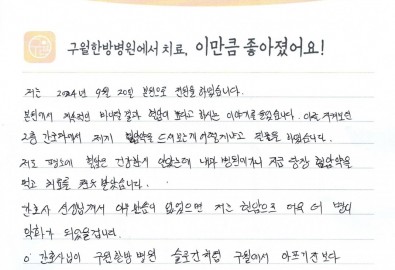 구월한방병원에서 치료, 이만큼 좋아졌어요!
저는 2024년 9월 20일 본원으로 전원을 하였습니다.
본원에서 결과 혈압이 높다고 하시는 이야기를 들었습니다.
2층 간호과에서 제게 혈압약을 드셔보는게 어떻겠냐고 권유를 하였습니다.
저도 평소에 혈압은 건강하지 않았는데 내과 병원이거나 지금 당장 혈압약을
먹고 치료를 받았습니다.
간호사 선생님께서 아무 말씀이 없었으면 저는 혈압으로 더욱 더 병이
악화가 되었을겁니다.
이 간호사님이 구월한방병원 슬로건처럼 구월에서 아프기전 보다